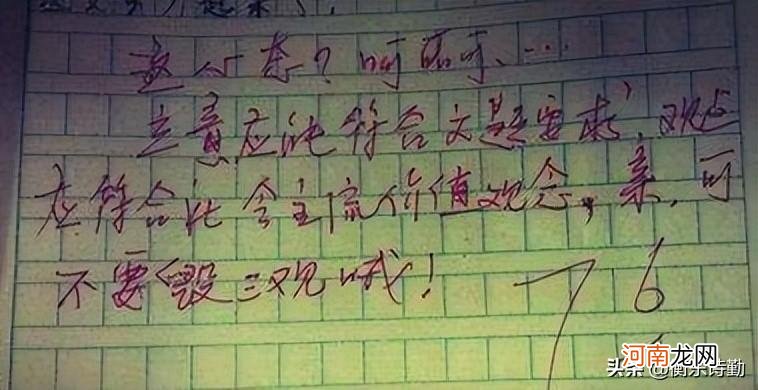 赵小杰？呵呵呵、…
立意应能符合文题要求，观点
应符合社会主流价值观念，亲，可
不要毁三观哦！
76
河南龙网
头条 @衡东诗勤